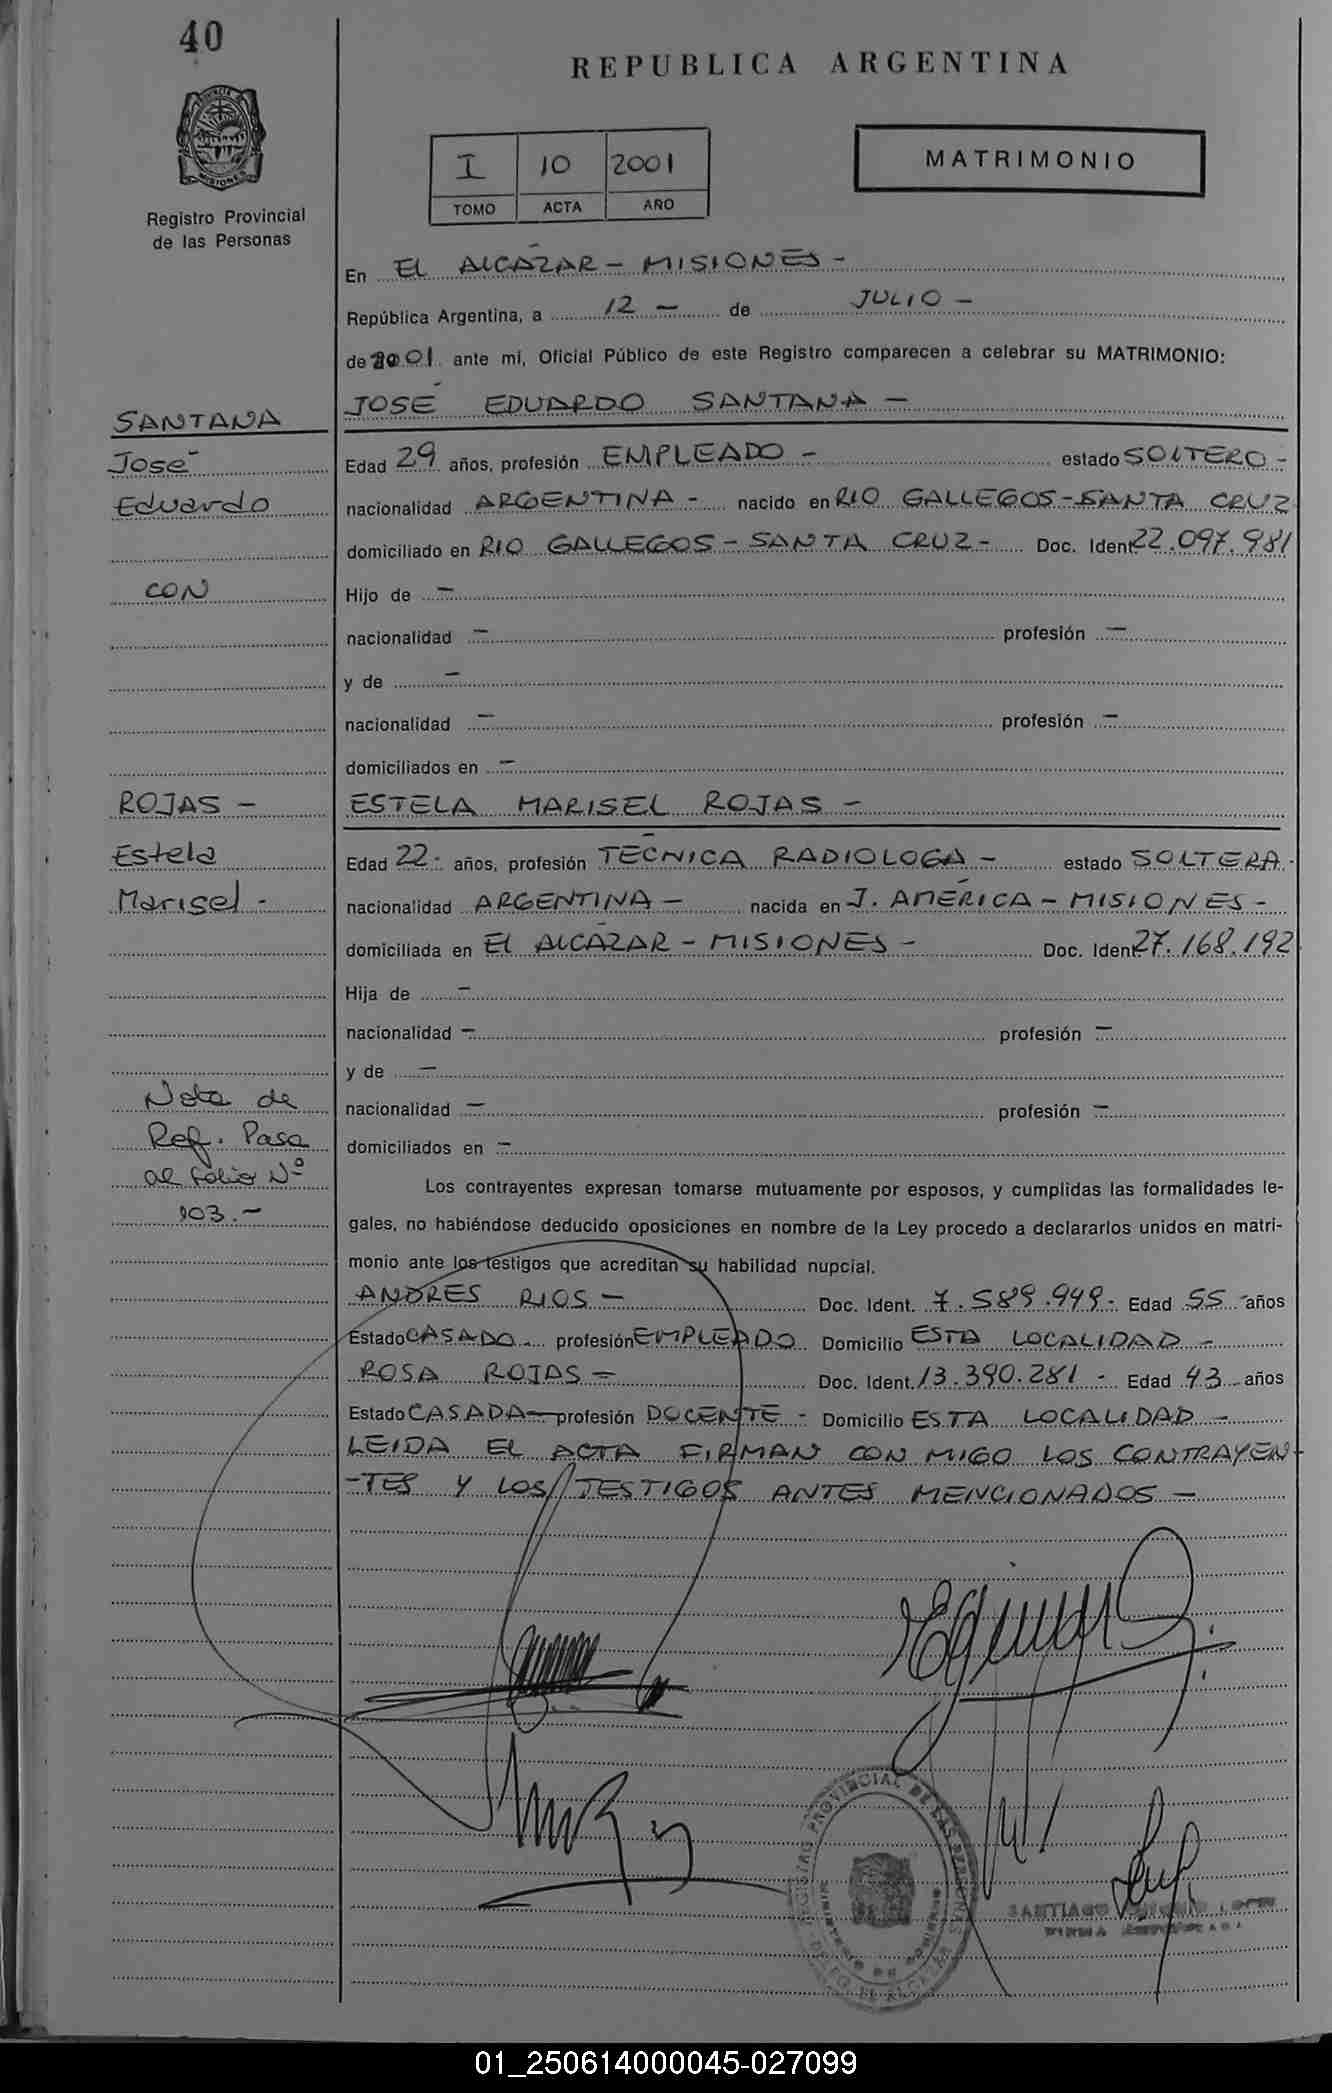 40
REPUBLICA ARGENTINA
PROVINCIA DE
MISIONES
Registro Provincial
de las Personas
I 10 2001
TOMO ACTA AÑO
MATRIMONIO
En EL ALCÁZAR - MISIONES -
República Argentina, a 12 - de JULIO -
de 2001 ante mi, Oficial Público de este Registro comparecen a celebrar su MATRIMONIO:
SANTANA
JOSÉ EDUARDO SANTANA -
José
Edad 29 años, profesión EMPLEADO - estado SOLTERO -
Eduardo
nacionalidad ARGENTINA - nacido en RIO GALLEGOS - SANTA CRUZ
domiciliado en RIO GALLEGOS - SANTA CRUZ - Doc. Ident. 22.097.981
CON
Hijo de -
nacionalidad - profesión -
y de -
nacionalidad - profesión -
domiciliados en -
ROJAS -
ESTELA MARISEL ROJAS -
Estela
Edad 22- años, profesión TÉCNICA RADIOLOGA - estado SOLTERA -
Marisel -
nacionalidad ARGENTINA - nacida en J. AMÉRICA - MISIONES -
domiciliada en El ALCÁZAR - MISIONES - Doc. Ident. 27.168.192
Hija de -
nacionalidad - profesión -
y de -
nacionalidad - profesión -
domiciliados en -
Nota de
Ref. Pasa
al folio Nº
103.-
Los contrayentes expresan tomarse mutuamente por esposos, y cumplidas las formalidades le-
gales, no habiéndose deducido oposiciones en nombre de la Ley procedo a declararlos unidos en matri-
monio ante los testigos que acreditan su habilidad nupcial.
ANDRES RIOS - Doc. Ident. 7.589.949- Edad 55 años
Estado CASADO - profesión EMPLEADO Domicilio ESTA LOCALIDAD -
ROSA ROJAS - Doc. Ident. 13.390.281 - Edad 43 años
Estado CASADA - profesión DOCENTE - Domicilio ESTA LOCALIDAD -
LEIDA EL ACTA FIRMAN CON MIGO LOS CONTRAYEN-
-TES Y LOS TESTIGOS ANTES MENCIONADOS -
REGISTRO PROVINCIAL DE LAS PERSONAS
MINISTERIO DE GOBIERNO
EL ALCAZAR
SANTIAGO
01_250614000045-027099